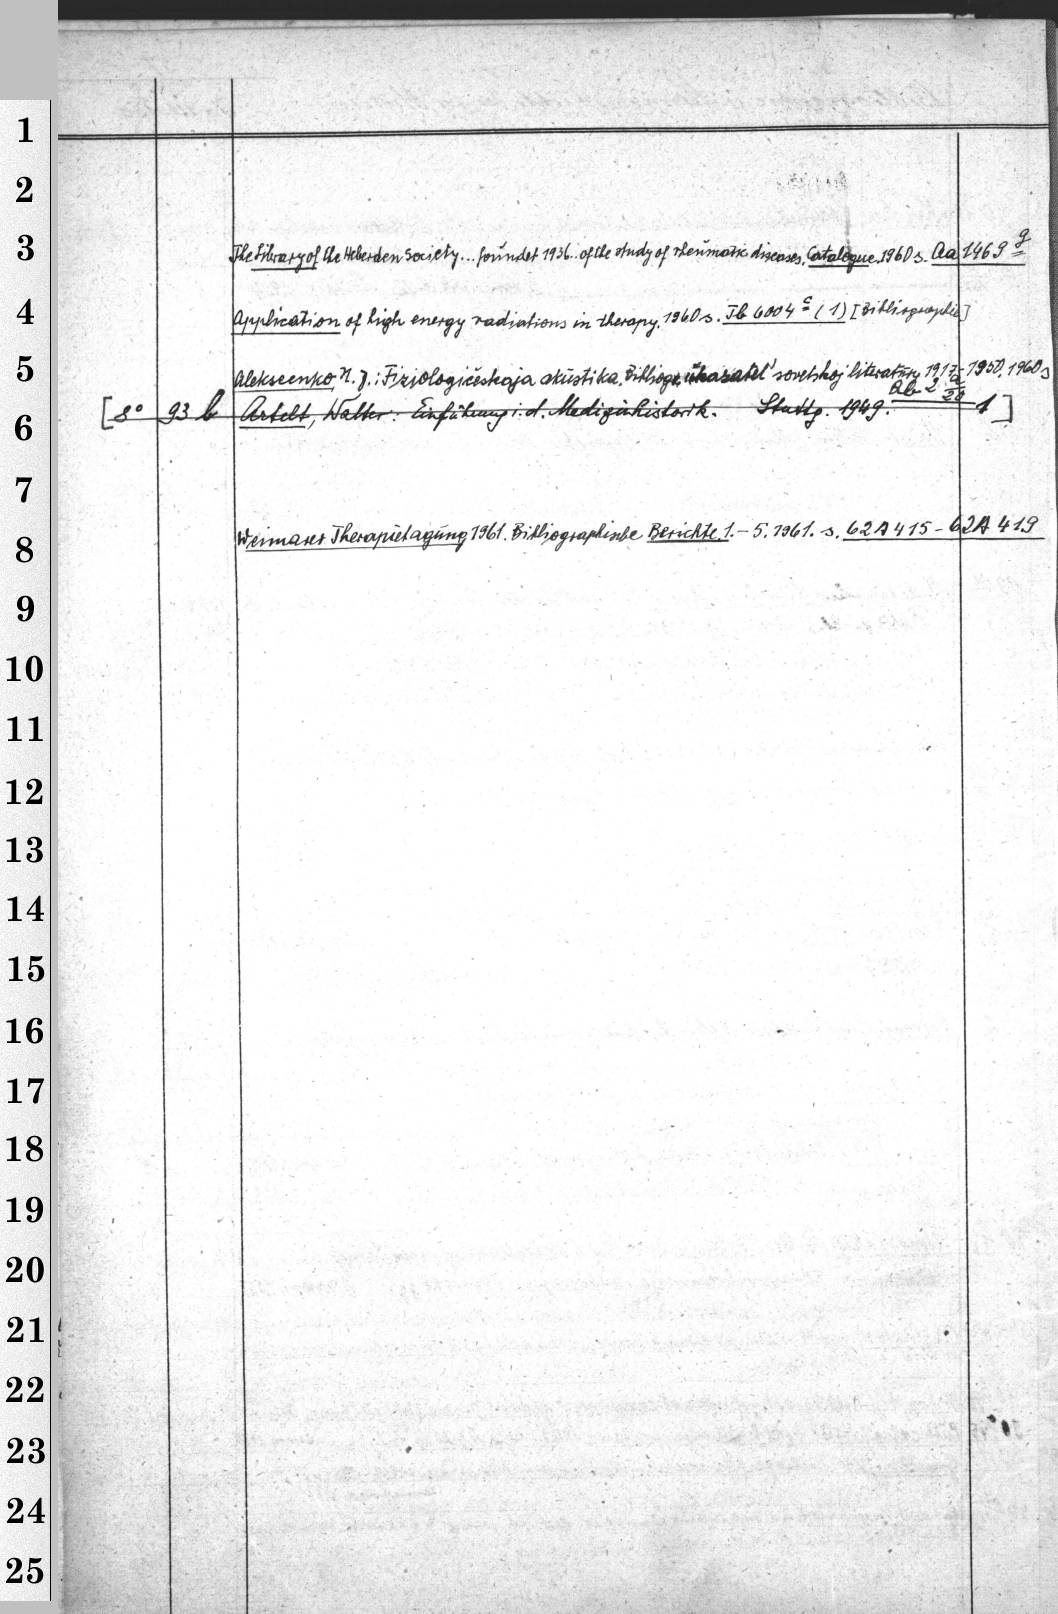 1
2
3
The Library of the Heberden Society... foundet 1936.. of the study of rheumatic diseases. Catalogue. 1960 s. Aa 1469 g
4
Application of high energy radiations in therapy. 1960 s. Jb 6004 c (1) [Bibliographie]
5
Alekseenko, N. J.: Fiziologičeskaja akustika. Bibliogr. ukazatel' sovetskoj literatury 1917–1950. 1960 s
Ab 2 a/20
6
[8° 93 b Artelt, Walter: Einführung i. d. Medizinhistorik. Stuttg. 1949. 1]
7
8
Weimarer Therapietagung 1961. Bibliographische Berichte 1.–5. 1961. s. 62 A 415 – 62 A 419
9
10
11
12
13
14
15
16
17
18
19
20
21
22
23
24
25